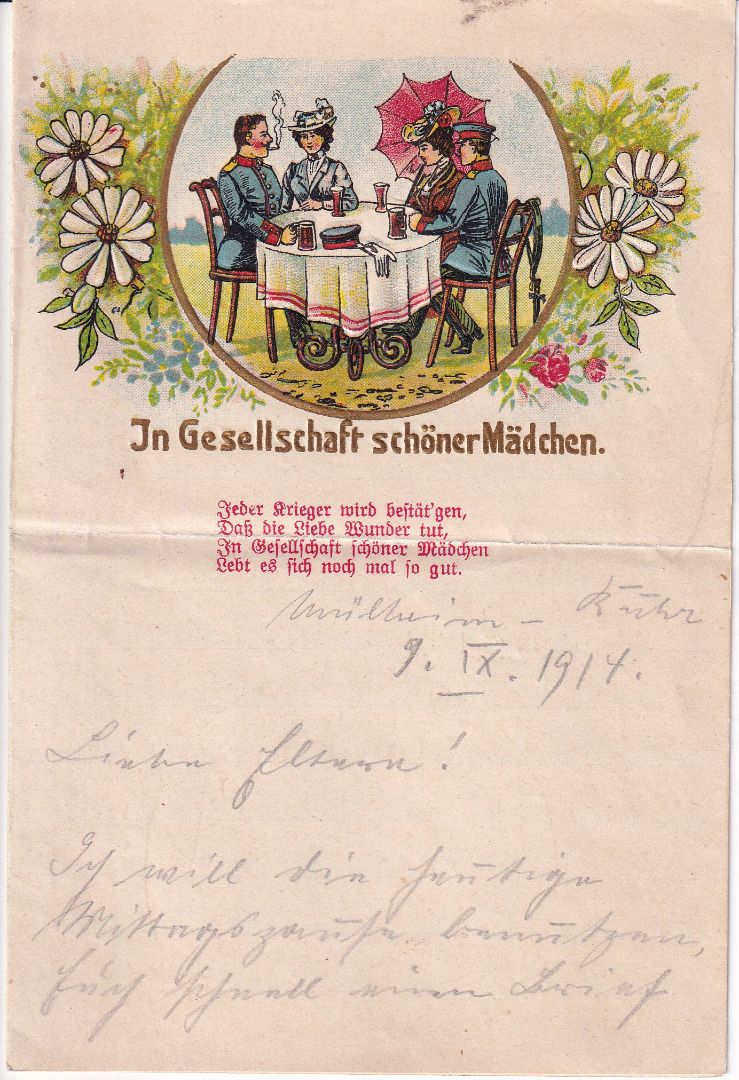 In Gesellschaft schöner Mädchen.
Jeder Krieger wird bestät'gen,
Daß die Liebe Wunder tut,
In Gesellschaft schöner Mädchen
Lebt es sich noch mal so gut.
Mülheim - Ruhr
9. IX. 1914.
Liebe Eltern!
Ich will die heutige
Mittagspause benutzen,
Euch schnell einen Brief